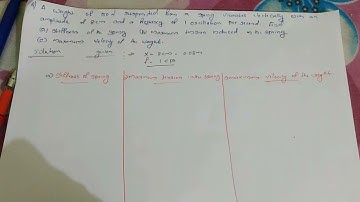 A weight of 50N suspended from a spring vibrates vertically with an
amplitude of 8cm and a frequency of 1 oscillation per second. Find
(a) Stiffness of the spring (b) Maximum tension induced in the spring
(c) maximum velocity of the weight.
Solution given :- x = 8cm = 0.08m
f = 1 cps
a) Stiffness of spring
maximum tension in the spring
maximum velocity of the weight